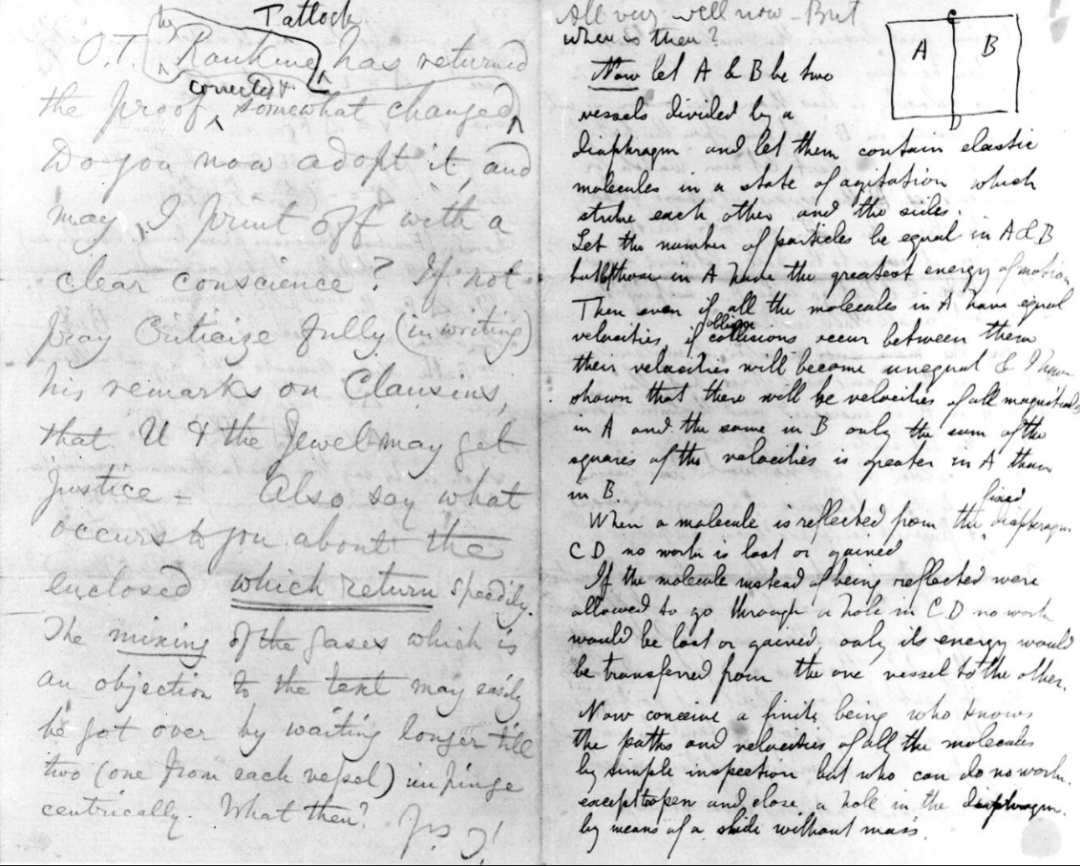 by Tatlock
O.T. Rankine has returned
corrected &
the proof, somewhat changed,
Do you now adopt it, and
may I print off with a
clear conscience? If not
pray Criticize fully (in writing)
his remarks on Clausius,
that U & the Jewel may get
justice - Also say what
occurs to you about the
enclosed which return speedily.
The mixing of the gases which is
an objection to the text may easily
be got over by waiting longer till
two (one from each vessel) impinge
centrically. What then?
All very well now - But
when is then?
C
A B
D
Now let A & B be two
vessels divided by a
diaphragm and let them contain elastic
molecules in a state of agitation which
strike each other and the sides.
Let the number of particles be equal in A & B
but those in A have the greatest energy of motion.
Then even if all the molecules in A have equal
oblique
velocities, if collisions occur between them
their velocities will become unequal & I have
shown that there will be velocities of all magnitudes
in A and the same in B only the sum of the
squares of the velocities is greater in A than
in B.
fixed
When a molecule is reflected from the diaphragm
C D no work is lost or gained
If the molecule instead of being reflected were
allowed to go through a hole in C D no work
would be lost or gained, only its energy would
be transferred from the one vessel to the other.
Now conceive a finite being who knows
the paths and velocities of all the molecules
by simple inspection but who can do no work
except open and close a hole in the diaphragm
by means of a slide without mass.